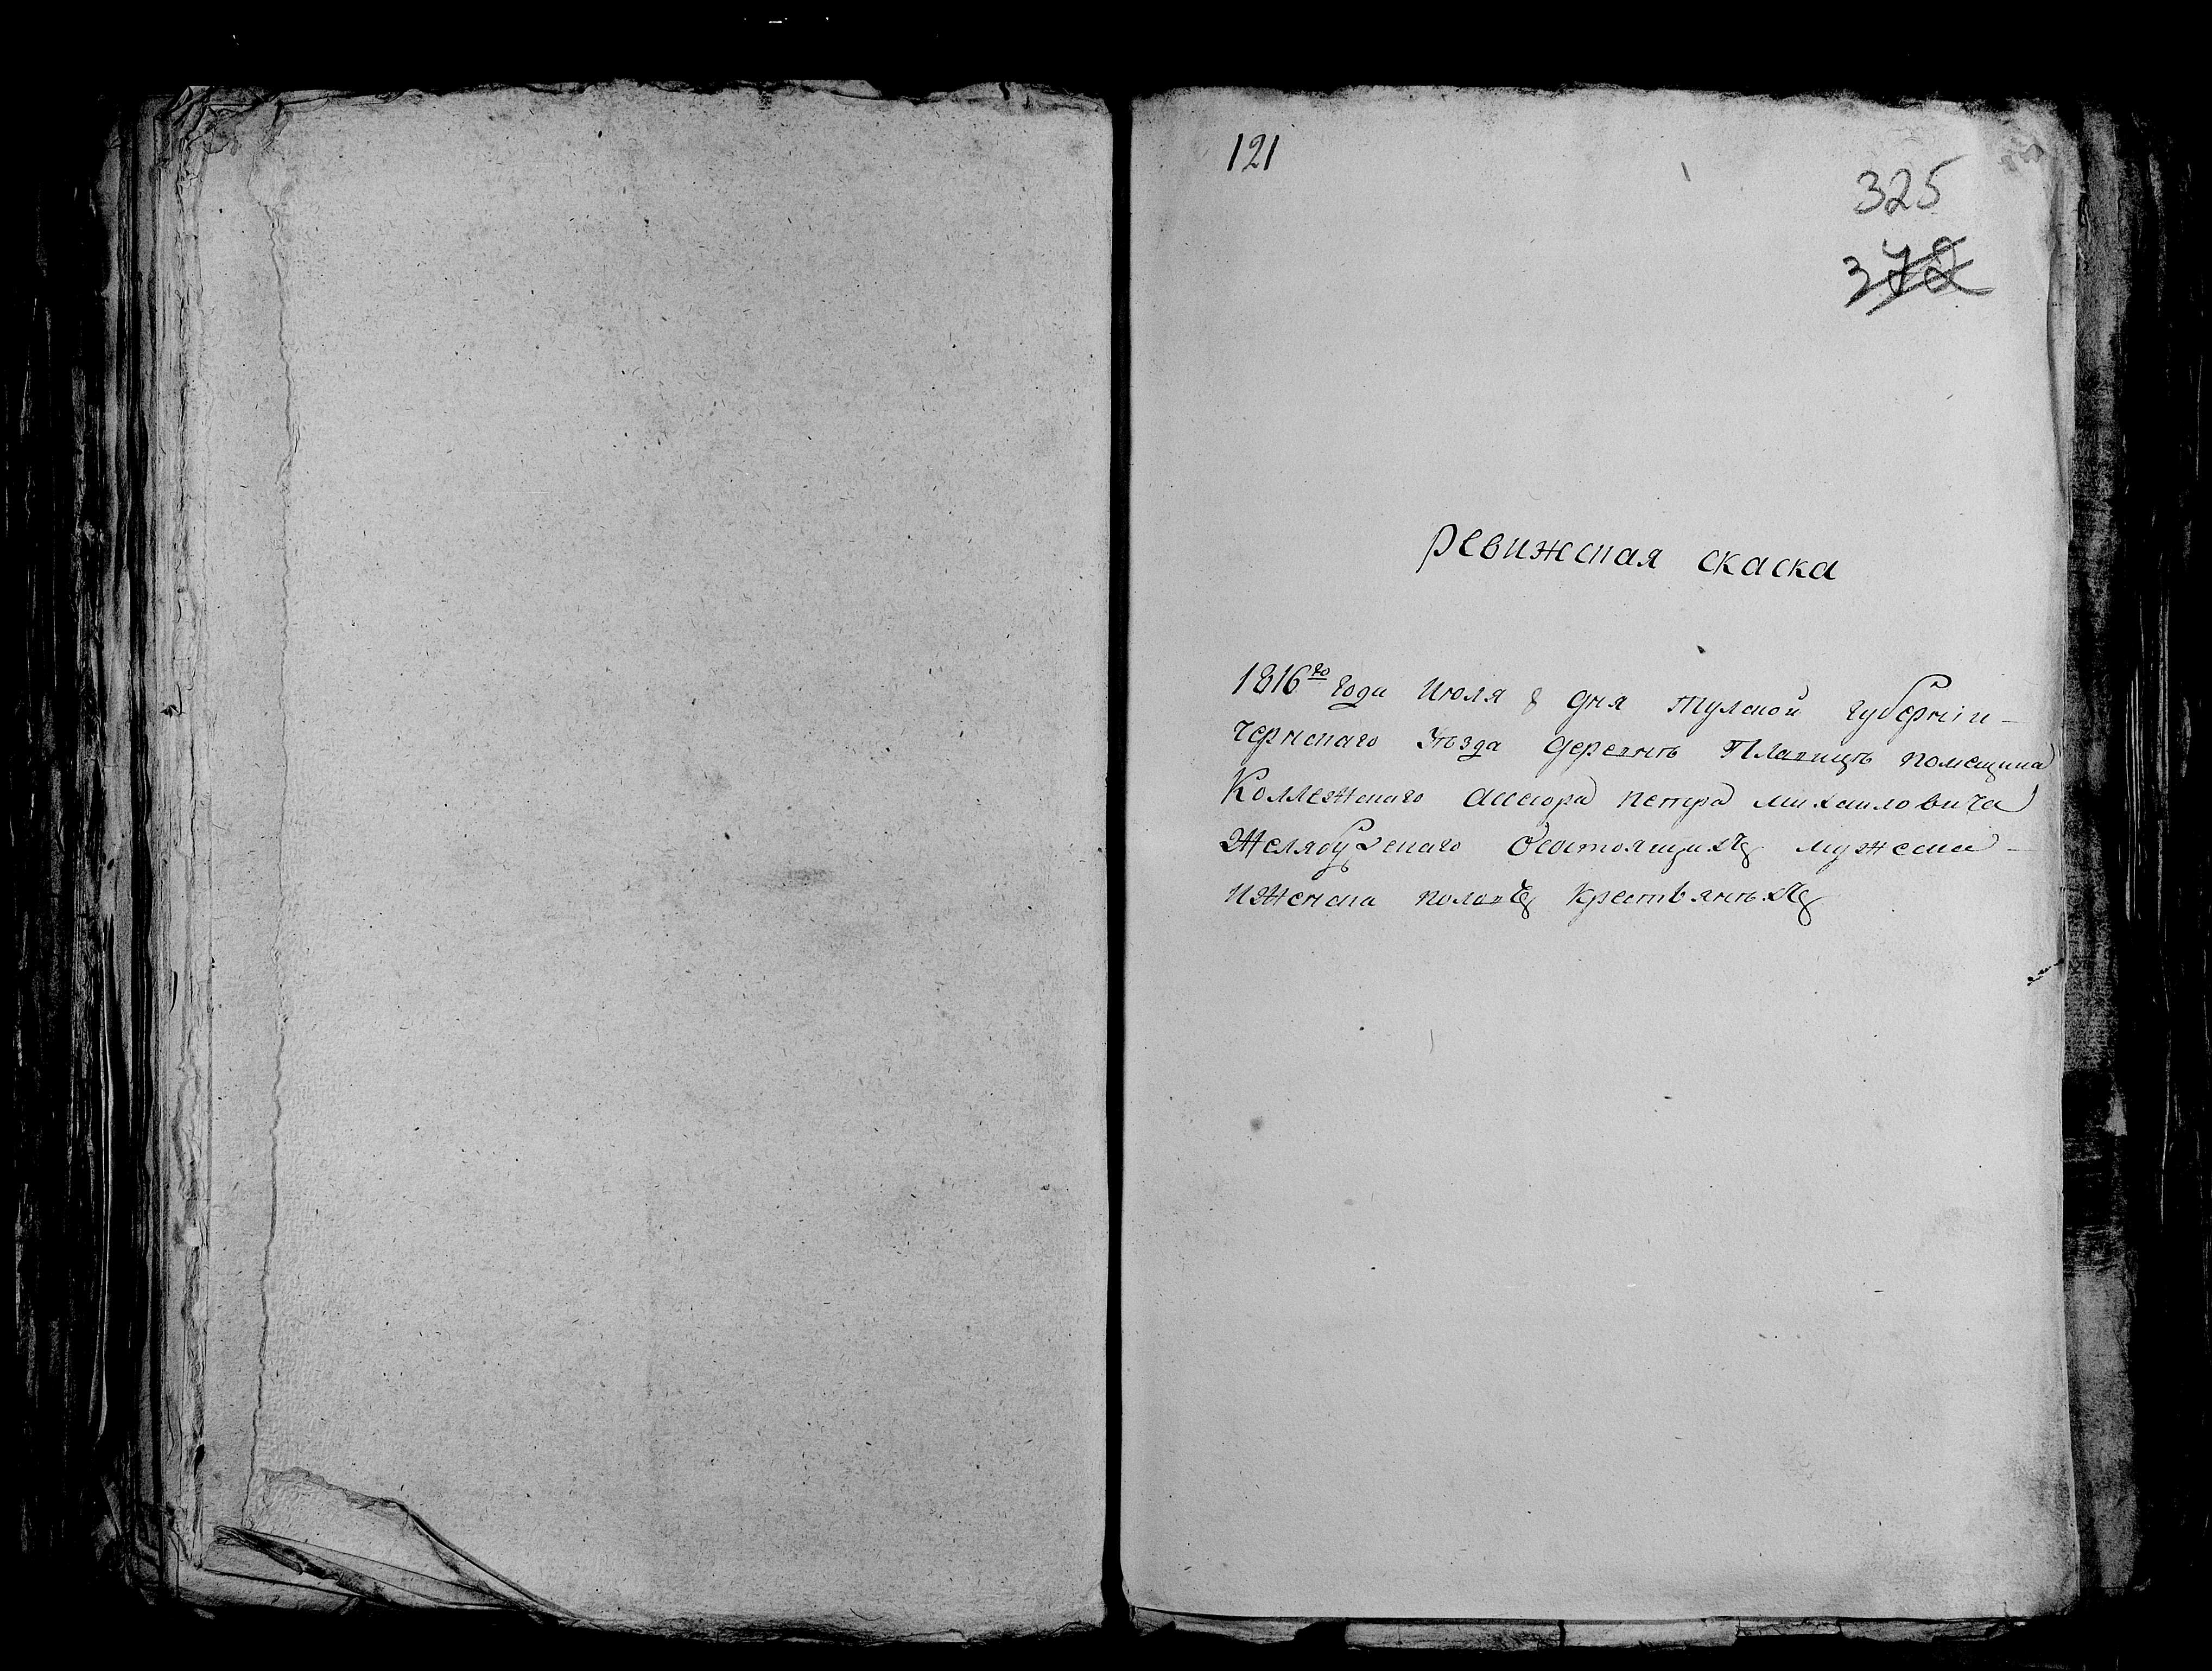 121
325
372
ревижская скаска
1816го года Июля 8 дня тулской губерніи
чернскаго уѣзда деревнѣ Плавицѣ помещика
Коллежскаго асесора петра михаиловича
Желябускаго Осостоящихъ мужеска
ижениска полавъ крестьянѣхъ